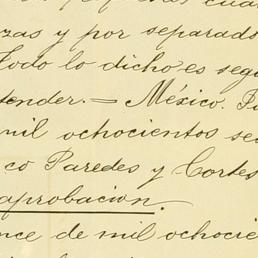 zas y por separado
Todo lo dicho es segu
tender. = México. Ju
mil ochocientos se
co Paredes y Cortes
aprobacion.
nce de mil ochocie